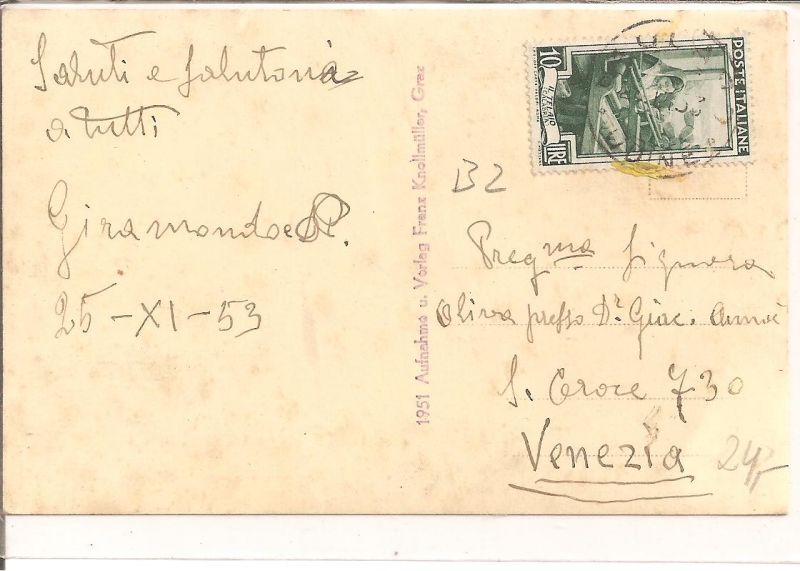 Saluti e salutoni
a tutti
Giramondo e P.
25-XI-53
1951 Aufnahme u. Verlag Franz Knollmüller, Graz
B2
POSTE ITALIANE
10
LIRE
IL TELAIO
UDINE
Pregma Signora
Oliva presso Dr Giac.
S. Croce 730
Venezia